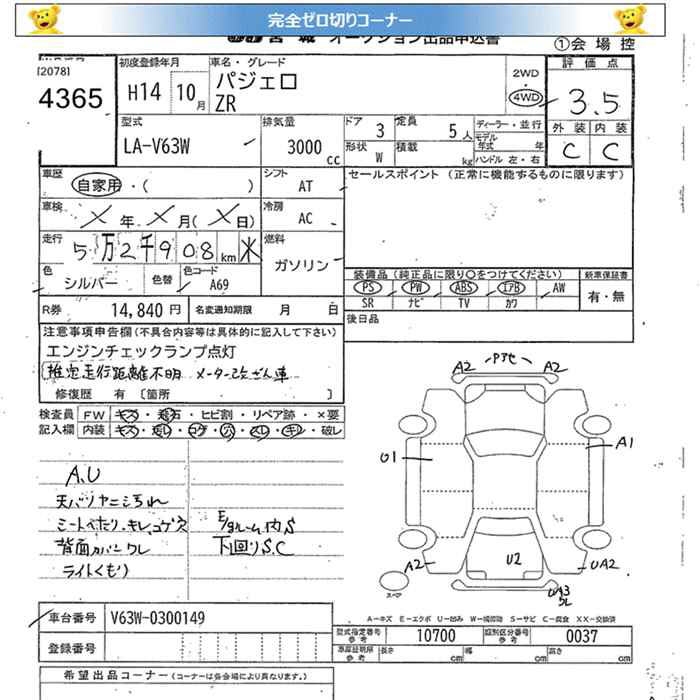 完全ゼロ切りコーナー
宮城 オークション出品申込書 ①会場控
[2078]
4365
初度登録年月 H14 10月
車名・グレード パジェロ ZR
2WD・4WD
評価点 3.5
外装 内装
C C
型式 LA-V63W
排気量 3000cc
ドア 3 定員 5人
形状 W 積載 kg
ディーラー・並行
モデル年式 年
ハンドル 左・右
車歴 自家用・( )
シフト AT
セールスポイント (正常に機能するものに限ります)
車検 メ年 メ月(メ日)
冷房 AC
走行 5万2千908km 米
燃料 ガソリン
色 シルバー 色替 色コード A69
装備品 (純正品に限り○をつけてください) 新車保証書
PS PW ABS エアB AW 有・無
SR ナビ TV カワ
R券 14,840円 名変通知期限 月 日
後日品
注意事項申告欄(不具合内容等は具体的に記入して下さい)
エンジンチェックランプ点灯
推定走行距離不明 メーター改ざん車
修復歴 有 [箇所 ]
検査員 FW キズ・飛石・ヒビ割・リペア跡・×要
記入欄 内装 キズ・汚レ・コゲ・穴・スレ・キレ・破レ
A.U
天バリヤニシちれ
シートヘタリ.キレ.コゲ穴
背面カバーワレ
ライトくもり
E/gルーム内S
下回りS.C
A2 A2
U1
A1
A2
U2
UA2
UA3
スペア
A-キズ E-エクボ U-凹み W-補修跡 S-サビ C-腐食 XX-交換済
車台番号 V63W-0300149
登録番号
型式指定番号 参考 10700 類別区分番号 参考 0037
車庫証明用 参考 長さ cm 幅 cm 高さ cm
希望出品コーナー (コーナーは各会場により異なります。)